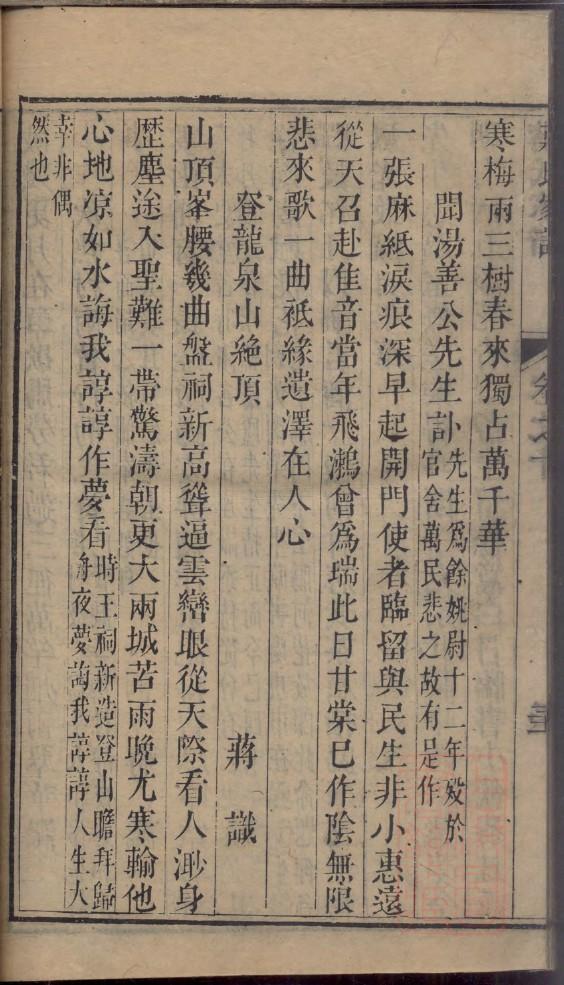 寒梅雨三樹春來獨占萬千華
聞湯善公先生訃先生爲餘姚尉十二年殁於
官舍萬民悲之故有是作
一張麻紙淚痕深早起開門使者臨留與民生非小惠遠
從天召赴佳音當年飛鸂曾爲瑞此日甘棠已作陰無限
悲來歌一曲祇緣遺澤在人心
登龍泉山絶頂
蔣識
山頂峯腰幾曲盤祠新高聳逼雲巒眼從天際看人渺身
歷塵途入聖難一帶驚濤朝更大兩城苦雨晚尤寒輸他
心地凉如水誨我諄諄作夢看時王祠新造登山瞻拜歸
舟夜夢誨我諄諄人生大
幸非偶
然也